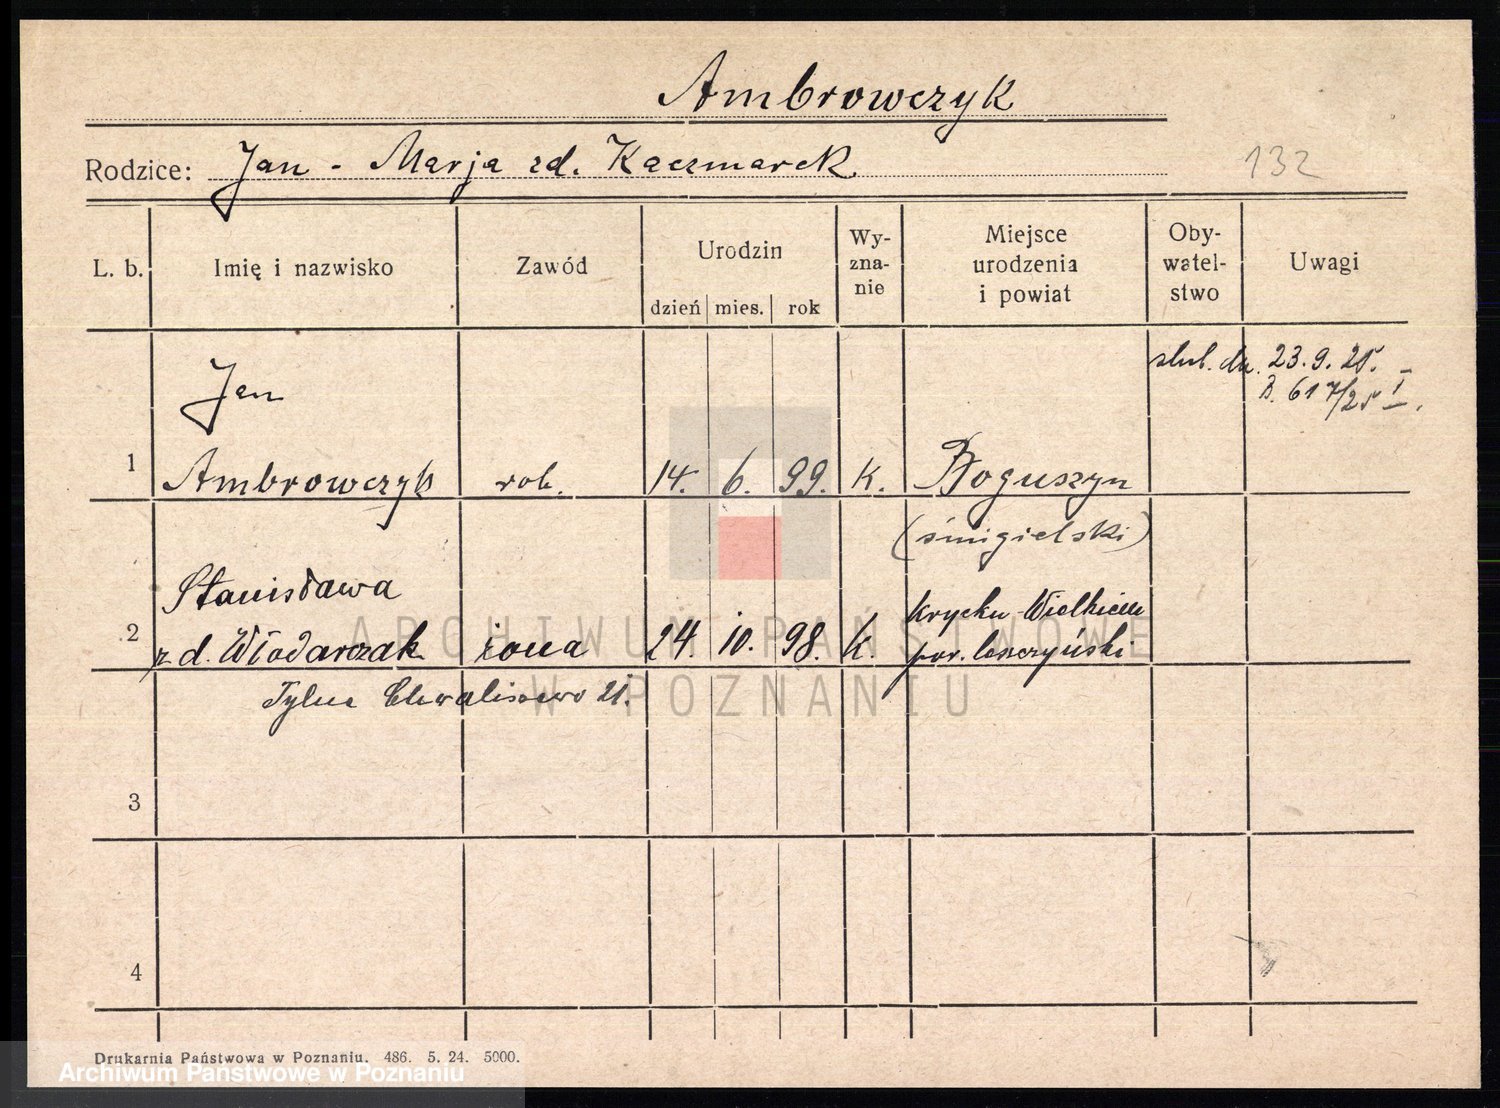 Ambrowczyk
Rodzice: Jan - Marja zd. Kaczmarek
132
L. b.
Imię i nazwisko
Zawód
Urodzin
dzień mies. rok
Wy-
zna-
nie
Miejsce
urodzenia
i powiat
Oby-
watel-
stwo
Uwagi
ślub. dn. 23.9.25.
B. 617/25 I
1
Jan
Ambrowczyk rob. 14. 6. 99. K. Boguszyn
(śmigielski)
2
Stanisława
zd. Włodarczak żona 24. 10. 98. K.
Krycku Wielkiem
pow. leszczyński
Tylne Chwaliszewo 21.
3
4
ARCHIWUM PAŃSTWOWE
W POZNANIU
Drukarnia Państwowa w Poznaniu. 486. 5. 24. 5000.
Archiwum Państwowe w Poznaniu